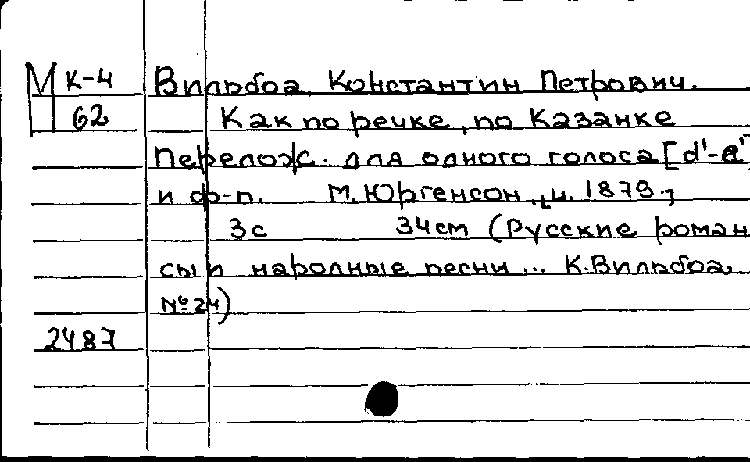 М К-4 Вильбоа, Константин Петрович.
62 Как по речке, по Казанке
Перелож. для одного голоса [d'-a']
и ф-п. М. Юргенсон, ц. 1879.,
3с 34см (Русские роман
сы и народные песни... К. Вильбоа,
№ 24)
2487